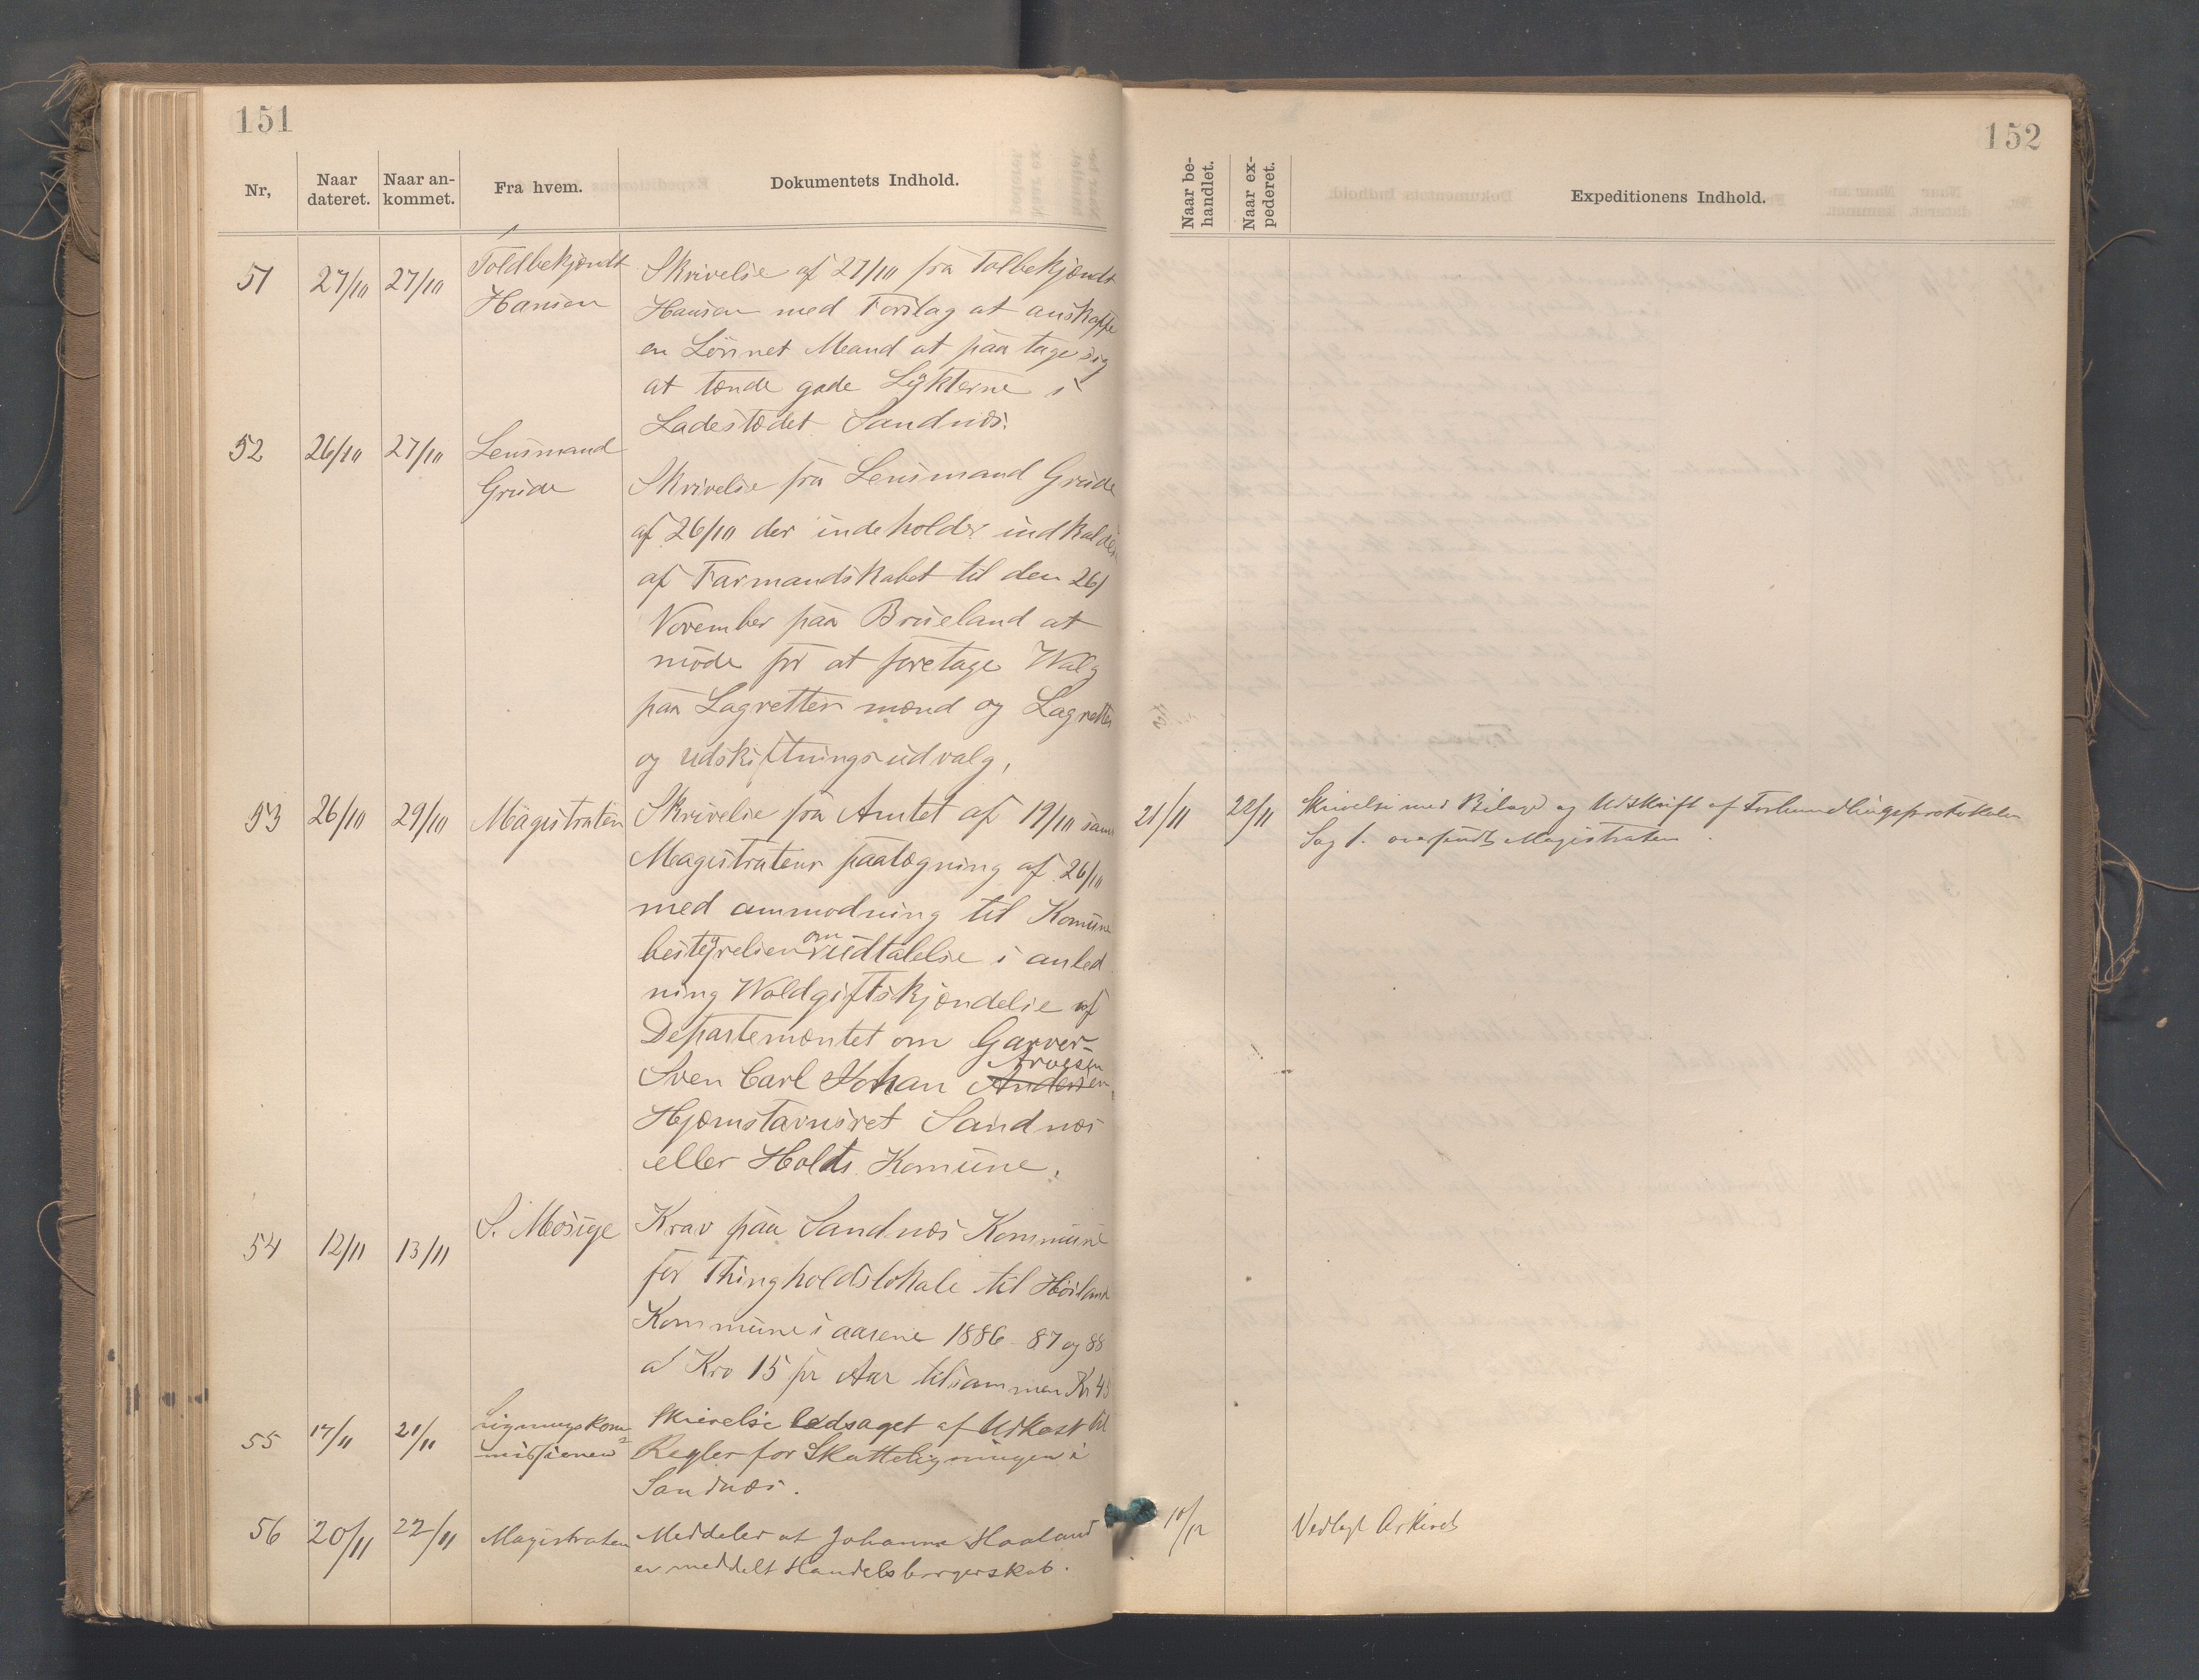 151
Nr,
Naar dateret.
Naar an-
kommet.
Fra hvem.
Dokumentets Indhold.
51 27/10 27/10 Toldbetjendt
Hansen
Skrivelse af 27/10 fra Tolbetjendt
Hansen med Forslag at anskaffe
en Lönnet Mand at paa tage sig
at tende gade Lÿkterne i
Ladestedet Sandnæs.
52 26/10 27/10 Lensmand
Grude
Skrivelse fra Lensmand Grude
af 26/10 der indeholder
af Farmandskabet til den 26/
November paa Brueland at
møde for at foretage Walg
paa Lagretter mænd og
og udskiftningsudvalg,
53 26/10 29/10 Magistraten
Skrivelse fra Amtet af 19/10 samt
Magistratens paategning af 26/10
med ammodning til Komune
bestÿrelsen om udtalelse i anled
ning Woldgiftskjendelse af
Departementet om Garver-
Arvesen
Sven Carl Johan Andersen,
Hjemstavnsret Sandnæs
eller Holts Komune.
54 12/11 13/11 S. Mosige
Krav paa Sandnæs Kommune
for Thingholdslokale til Höiland
Kommune i aarene 1886-87 og 88
a Kro 15 pr Aar tilsammen Kr 45
55 17/11 21/11 Ligningskom-
missionen
Skrivelse ledsaget af Udkast til
Regler for Skatteligningen i
Sandnæs.
56 20/11 22/11 Magistraten
Meddeler at Johanne Haaland
er meddelt Handelsborgerskab.
152
Naar be-
handlet.
Naar ex-
pederet.
Expeditionens Indhold.
21/11 22/11 Skrivelse med Bilage og Udskrift af Forhandlingsprotokolen
Sag 1. oversendt Magistraten.
10/12 Vedlagt Arkivet